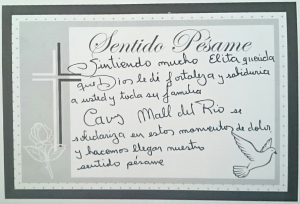 Sentido Pésame
Sintiendo mucho Elita querida
que Dios le dé fortaleza y sabiduria
a usted y toda su familia
Cavs Mall del Rio se
solidariza en estos momentos de dolor
y hacemos llegar nuestro
sentido pésame